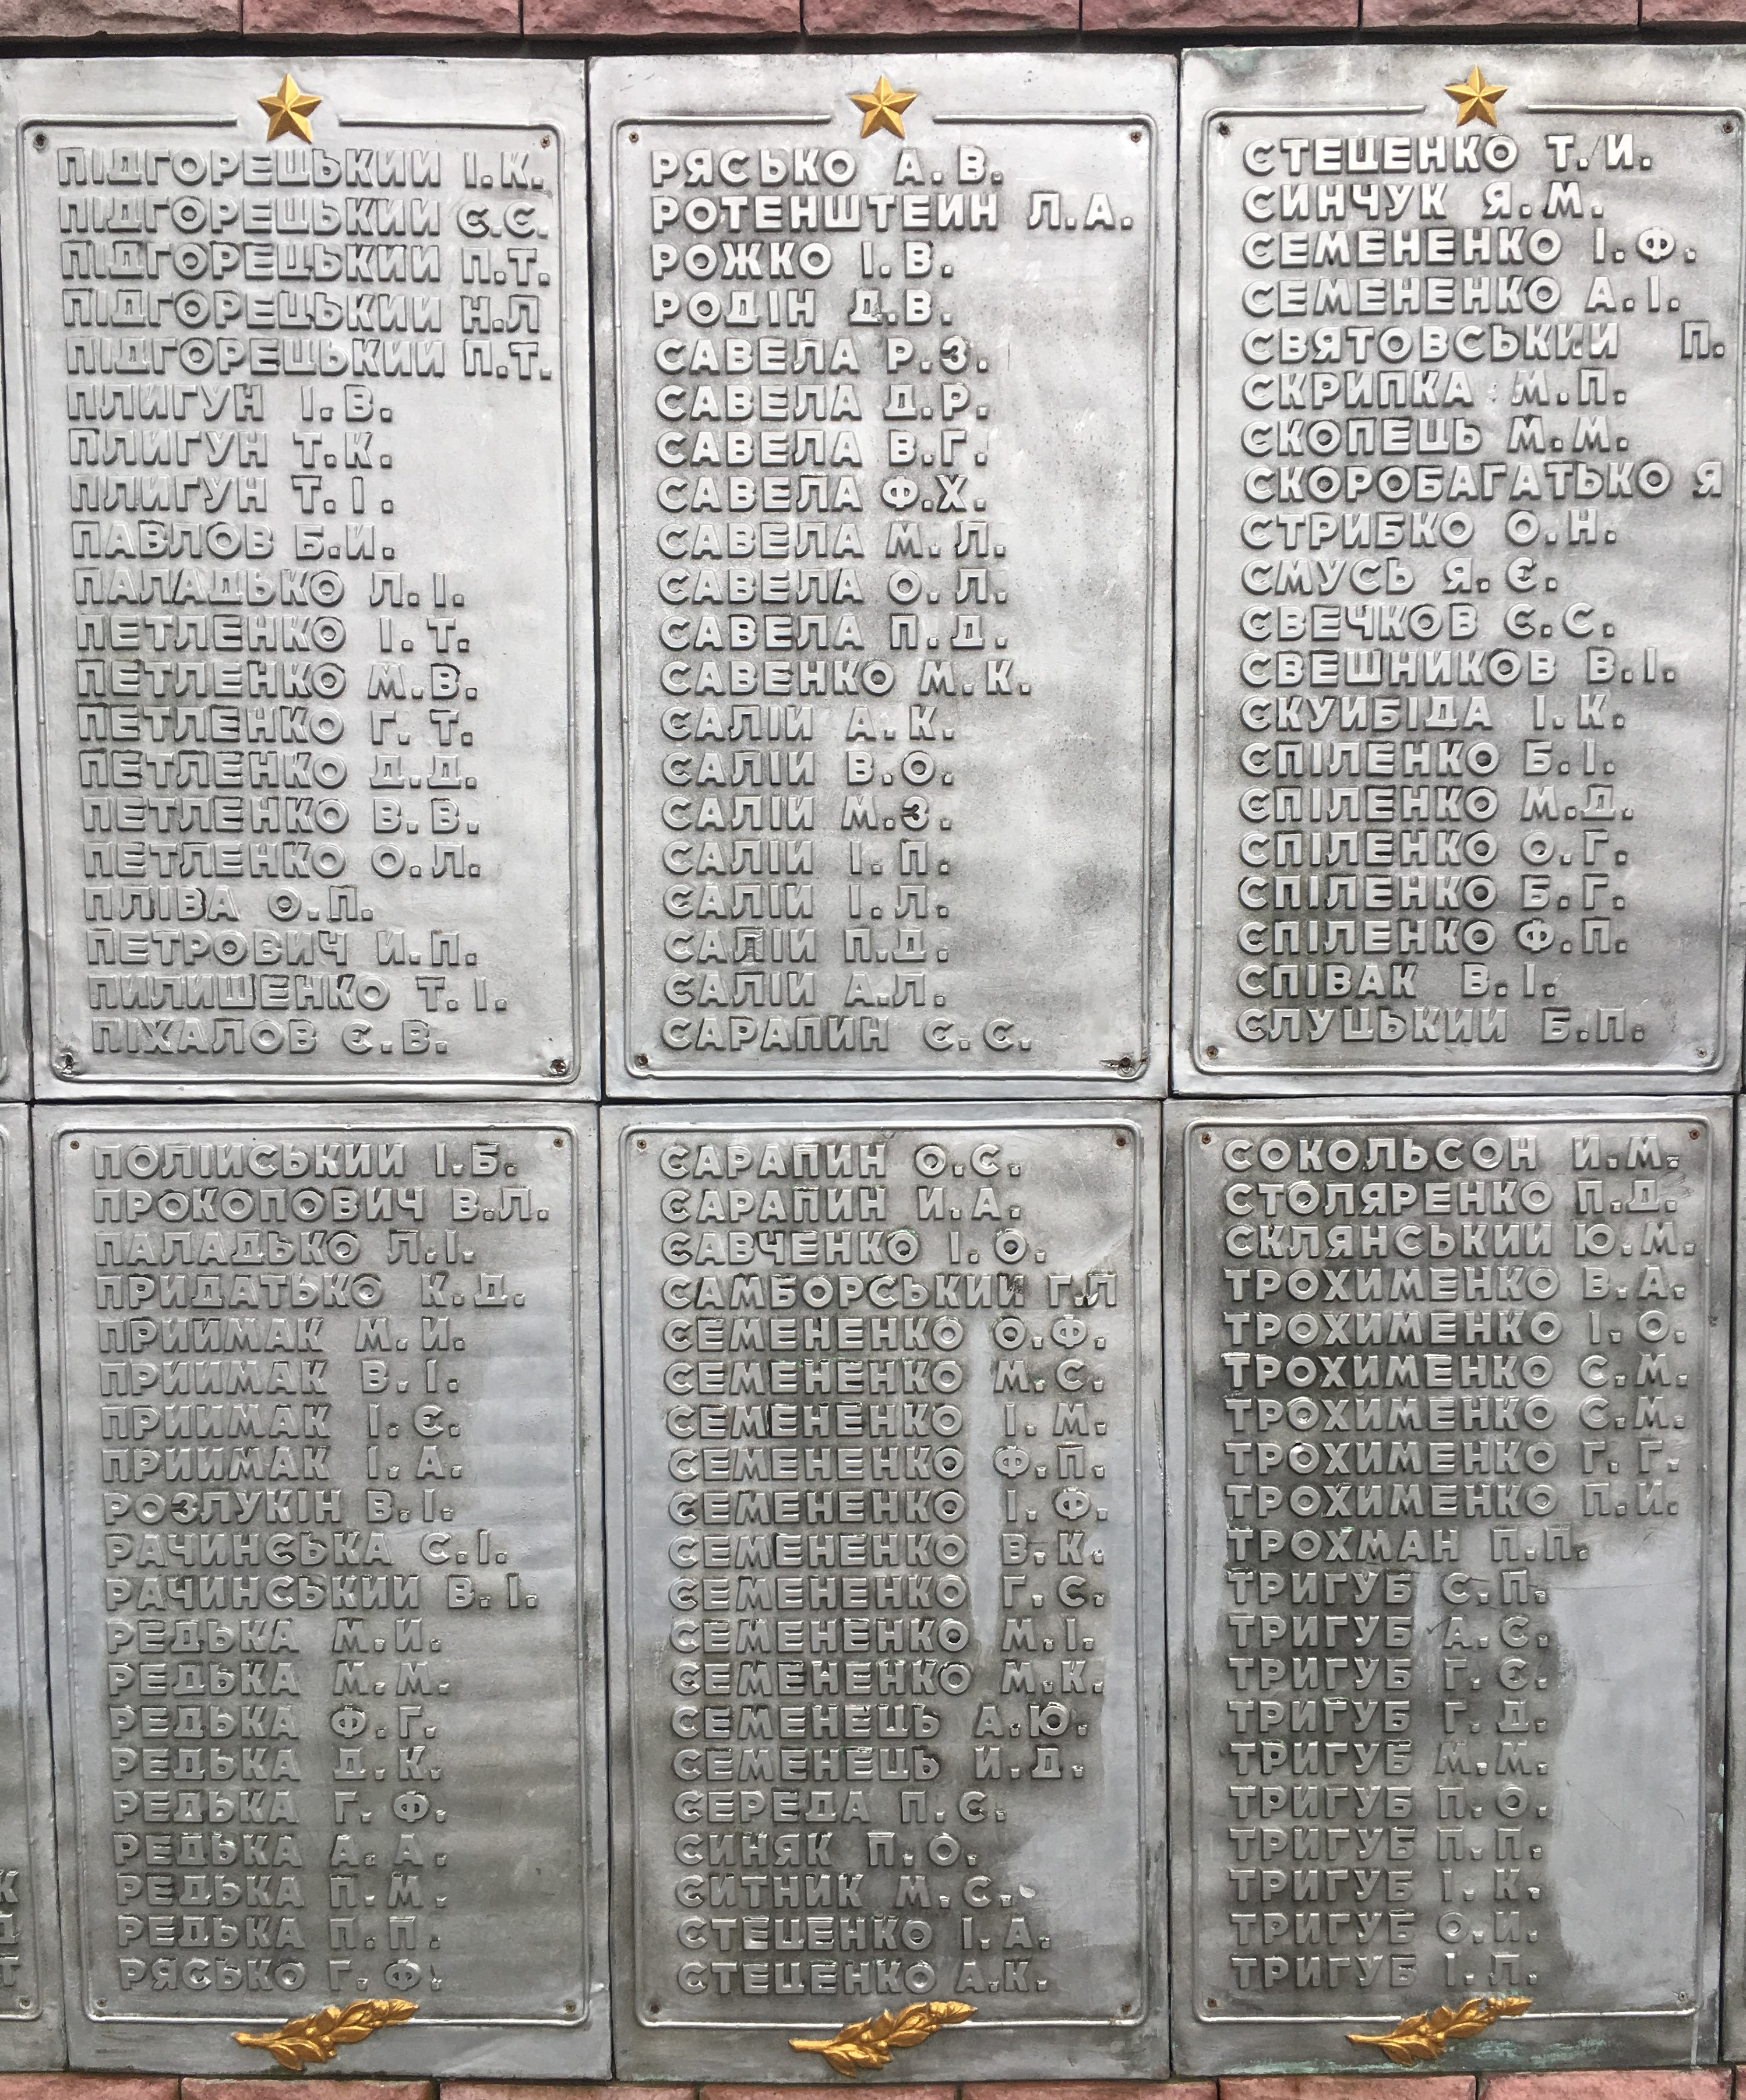 ПІДГОРЕЦЬКИИ І.К.
ПІДГОРЕЦЬКИИ Є.Є.
ПІДГОРЕЦЬКИИ П.Т.
ПІДГОРЕЦЬКИИ Н.Л
ПІДГОРЕЦЬКИИ П.Т.
ПЛИГУН І.В.
ПЛИГУН Т.К.
ПЛИГУН Т.І.
ПАВЛОВ Б.И.
ПАЛАДЬКО Л.І.
ПЕТЛЕНКО І.Т.
ПЕТЛЕНКО М.В.
ПЕТЛЕНКО Г.Т.
ПЕТЛЕНКО Д.Д.
ПЕТЛЕНКО В.В.
ПЕТЛЕНКО О.Л.
ПЛІВА О.П.
ПЕТРОВИЧ И.П.
ПИЛИШЕНКО Т.І.
ПІХАЛОВ Є.В.
ПОЛІИСЬКИИ І.Б.
ПРОКОПОВИЧ В.Л.
ПАЛАДЬКО Л.І.
ПРИДАТЬКО К.Д.
ПРИИМАК М.И.
ПРИИМАК В.І.
ПРИИМАК І.Є.
ПРИИМАК І.А.
РОЗЛУКІН В.І.
РАЧИНСЬКА С.І.
РАЧИНСЬКИИ В.І.
РЕДЬКА М.И.
РЕДЬКА М.М.
РЕДЬКА Ф.Г.
РЕДЬКА Д.К.
РЕДЬКА Г.Ф.
РЕДЬКА А.А.
РЕДЬКА П.М.
РЕДЬКА П.П.
РЯСЬКО Г.Ф.
РЯСЬКО А.В.
РОТЕНШТЕИН Л.А.
РОЖКО І.В.
РОДІН Д.В.
САВЕЛА Р.З.
САВЕЛА Д.Р.
САВЕЛА В.Г.
САВЕЛА Ф.Х.
САВЕЛА М.Л.
САВЕЛА О.Л.
САВЕЛА П.Д.
САВЕНКО М.К.
САЛІИ А.К.
САЛІИ В.О.
САЛІИ М.З.
САЛІИ І.П.
САЛІИ І.Л.
САЛІИ П.Д.
САЛІИ А.Л.
САРАПИН С.С.
САРАПИН О.С.
САРАПИН И.А.
САВЧЕНКО І.О.
САМБОРСЬКИИ Г.Л
СЕМЕНЕНКО О.Ф.
СЕМЕНЕНКО М.С.
СЕМЕНЕНКО І.М.
СЕМЕНЕНКО Ф.П.
СЕМЕНЕНКО І.Ф.
СЕМЕНЕНКО В.К.
СЕМЕНЕНКО Г.С.
СЕМЕНЕНКО М.І.
СЕМЕНЕНКО М.К.
СЕМЕНЕЦЬ А.Ю.
СЕМЕНЕЦЬ И.Д.
СЕРЕДА П.С.
СИНЯК П.О.
СИТНИК М.С.
СТЕЦЕНКО І.А.
СТЕЦЕНКО А.К.
СТЕЦЕНКО Т.И.
СИНЧУК Я.М.
СЕМЕНЕНКО І.Ф.
СЕМЕНЕНКО А.І.
СВЯТОВСЬКИИ П.
СКРИПКА М.П.
СКОПЕЦЬ М.М.
СКОРОБАГАТЬКО Я
СТРИБКО О.Н.
СМУСЬ Я.Є.
СВЕЧКОВ С.С.
СВЕШНИКОВ В.І.
СКУИБІДА І.К.
СПІЛЕНКО Б.І.
СПІЛЕНКО М.Д.
СПІЛЕНКО О.Г.
СПІЛЕНКО Б.Г.
СПІЛЕНКО Ф.П.
СПІВАК В.І.
СЛУЦЬКИИ Б.П.
СОКОЛЬСОН И.М.
СТОЛЯРЕНКО П.Д.
СКЛЯНСЬКИИ Ю.М.
ТРОХИМЕНКО В.А.
ТРОХИМЕНКО І.О.
ТРОХИМЕНКО С.М.
ТРОХИМЕНКО С.М.
ТРОХИМЕНКО Г.Г.
ТРОХИМЕНКО П.И.
ТРОХМАН П.П.
ТРИГУБ С.П.
ТРИГУБ А.С.
ТРИГУБ Г.Є.
ТРИГУБ Г.Д.
ТРИГУБ М.М.
ТРИГУБ П.О.
ТРИГУБ П.П.
ТРИГУБ І.К.
ТРИГУБ О.И.
ТРИГУБ І.Л.